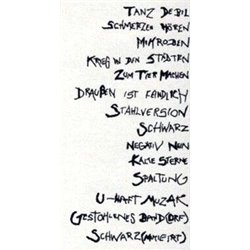 TANZ DEBIL
SCHMERZEN HÖREN
MIKROBEN
KRIEG IN DEN STÄDTEN
ZUM TIER MACHEN
DRAUßEN IST FEINDLICH
STAHLVERSION
SCHWARZ
NEGATIV NEIN
KALTE STERNE
SPALTUNG
U-HAFT MUZAK
GESTOHLENES BAND (ORF)
SCHWARZ (MUTIERT)